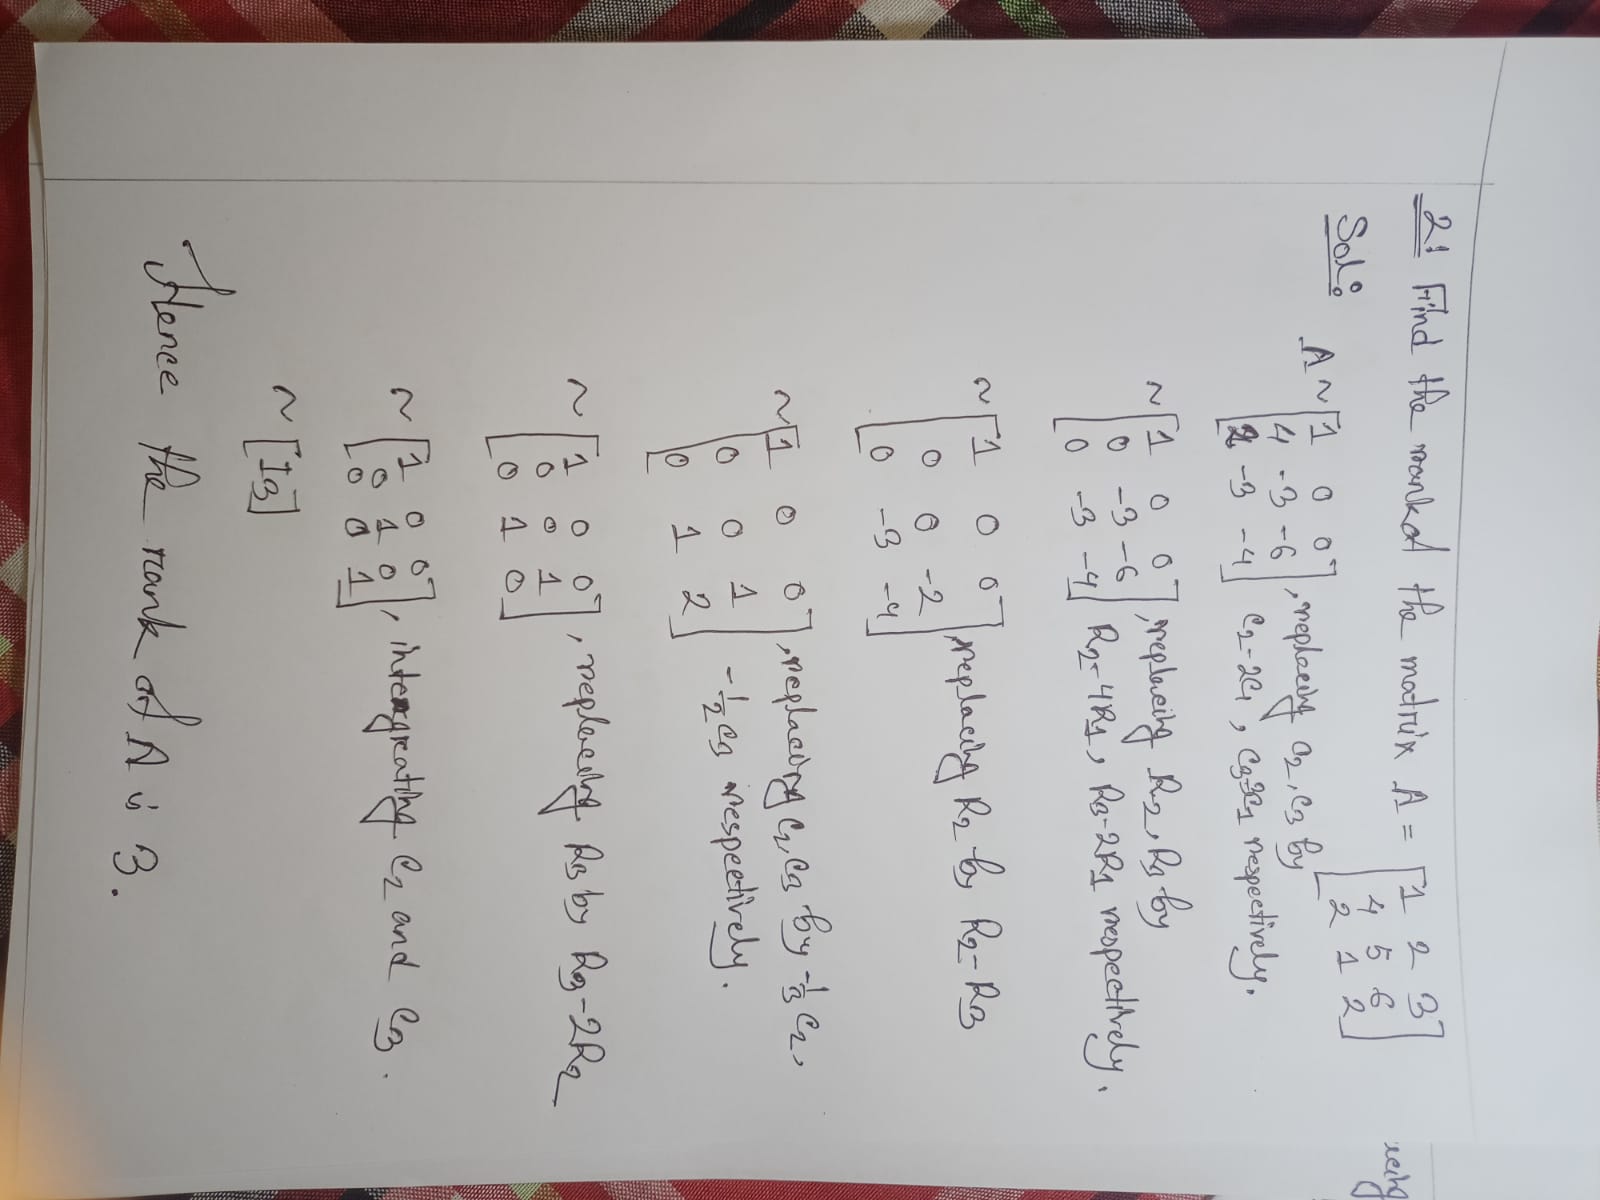 21 Find the rank of the matrix A = [1 2 3
4 5 6
2 1 2]
Sol:
A ~ [1 0 0
4 -3 -6
2 -3 -4], replacing C2, C3 by
C2-2C1, C3-3C1 respectively.
~ [1 0 0
0 -3 -6
0 -3 -4], replacing R2, R3 by
R2-4R1, R3-2R1 respectively.
~ [1 0 0
0 0 -2
0 -3 -4], replacing R2 by R2-R3
~ [1 0 0
0 0 1
0 1 2], replacing C2, C3 by -1/3 C2,
-1/2 C3 respectively.
~ [1 0 0
0 0 1
0 1 0], replacing R3 by R3-2R2
~ [1 0 0
0 1 0
0 0 1], intergreating C2 and C3.
~ [I3]
Hence the rank of A is 3.